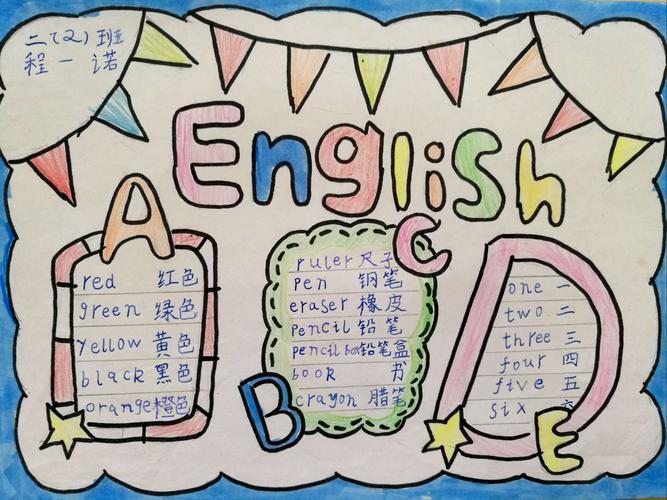 二(2)班
程一诺
English
A
red 红色
green 绿色
yellow 黄色
black 黑色
orange橙色
B
C
ruler 尺子
pen 钢笔
eraser 橡皮
pencil 铅笔
pencil box铅笔盒
book 书
crayon 腊笔
D
one 一
two 二
three 三
four 四
five 五
six 六
E